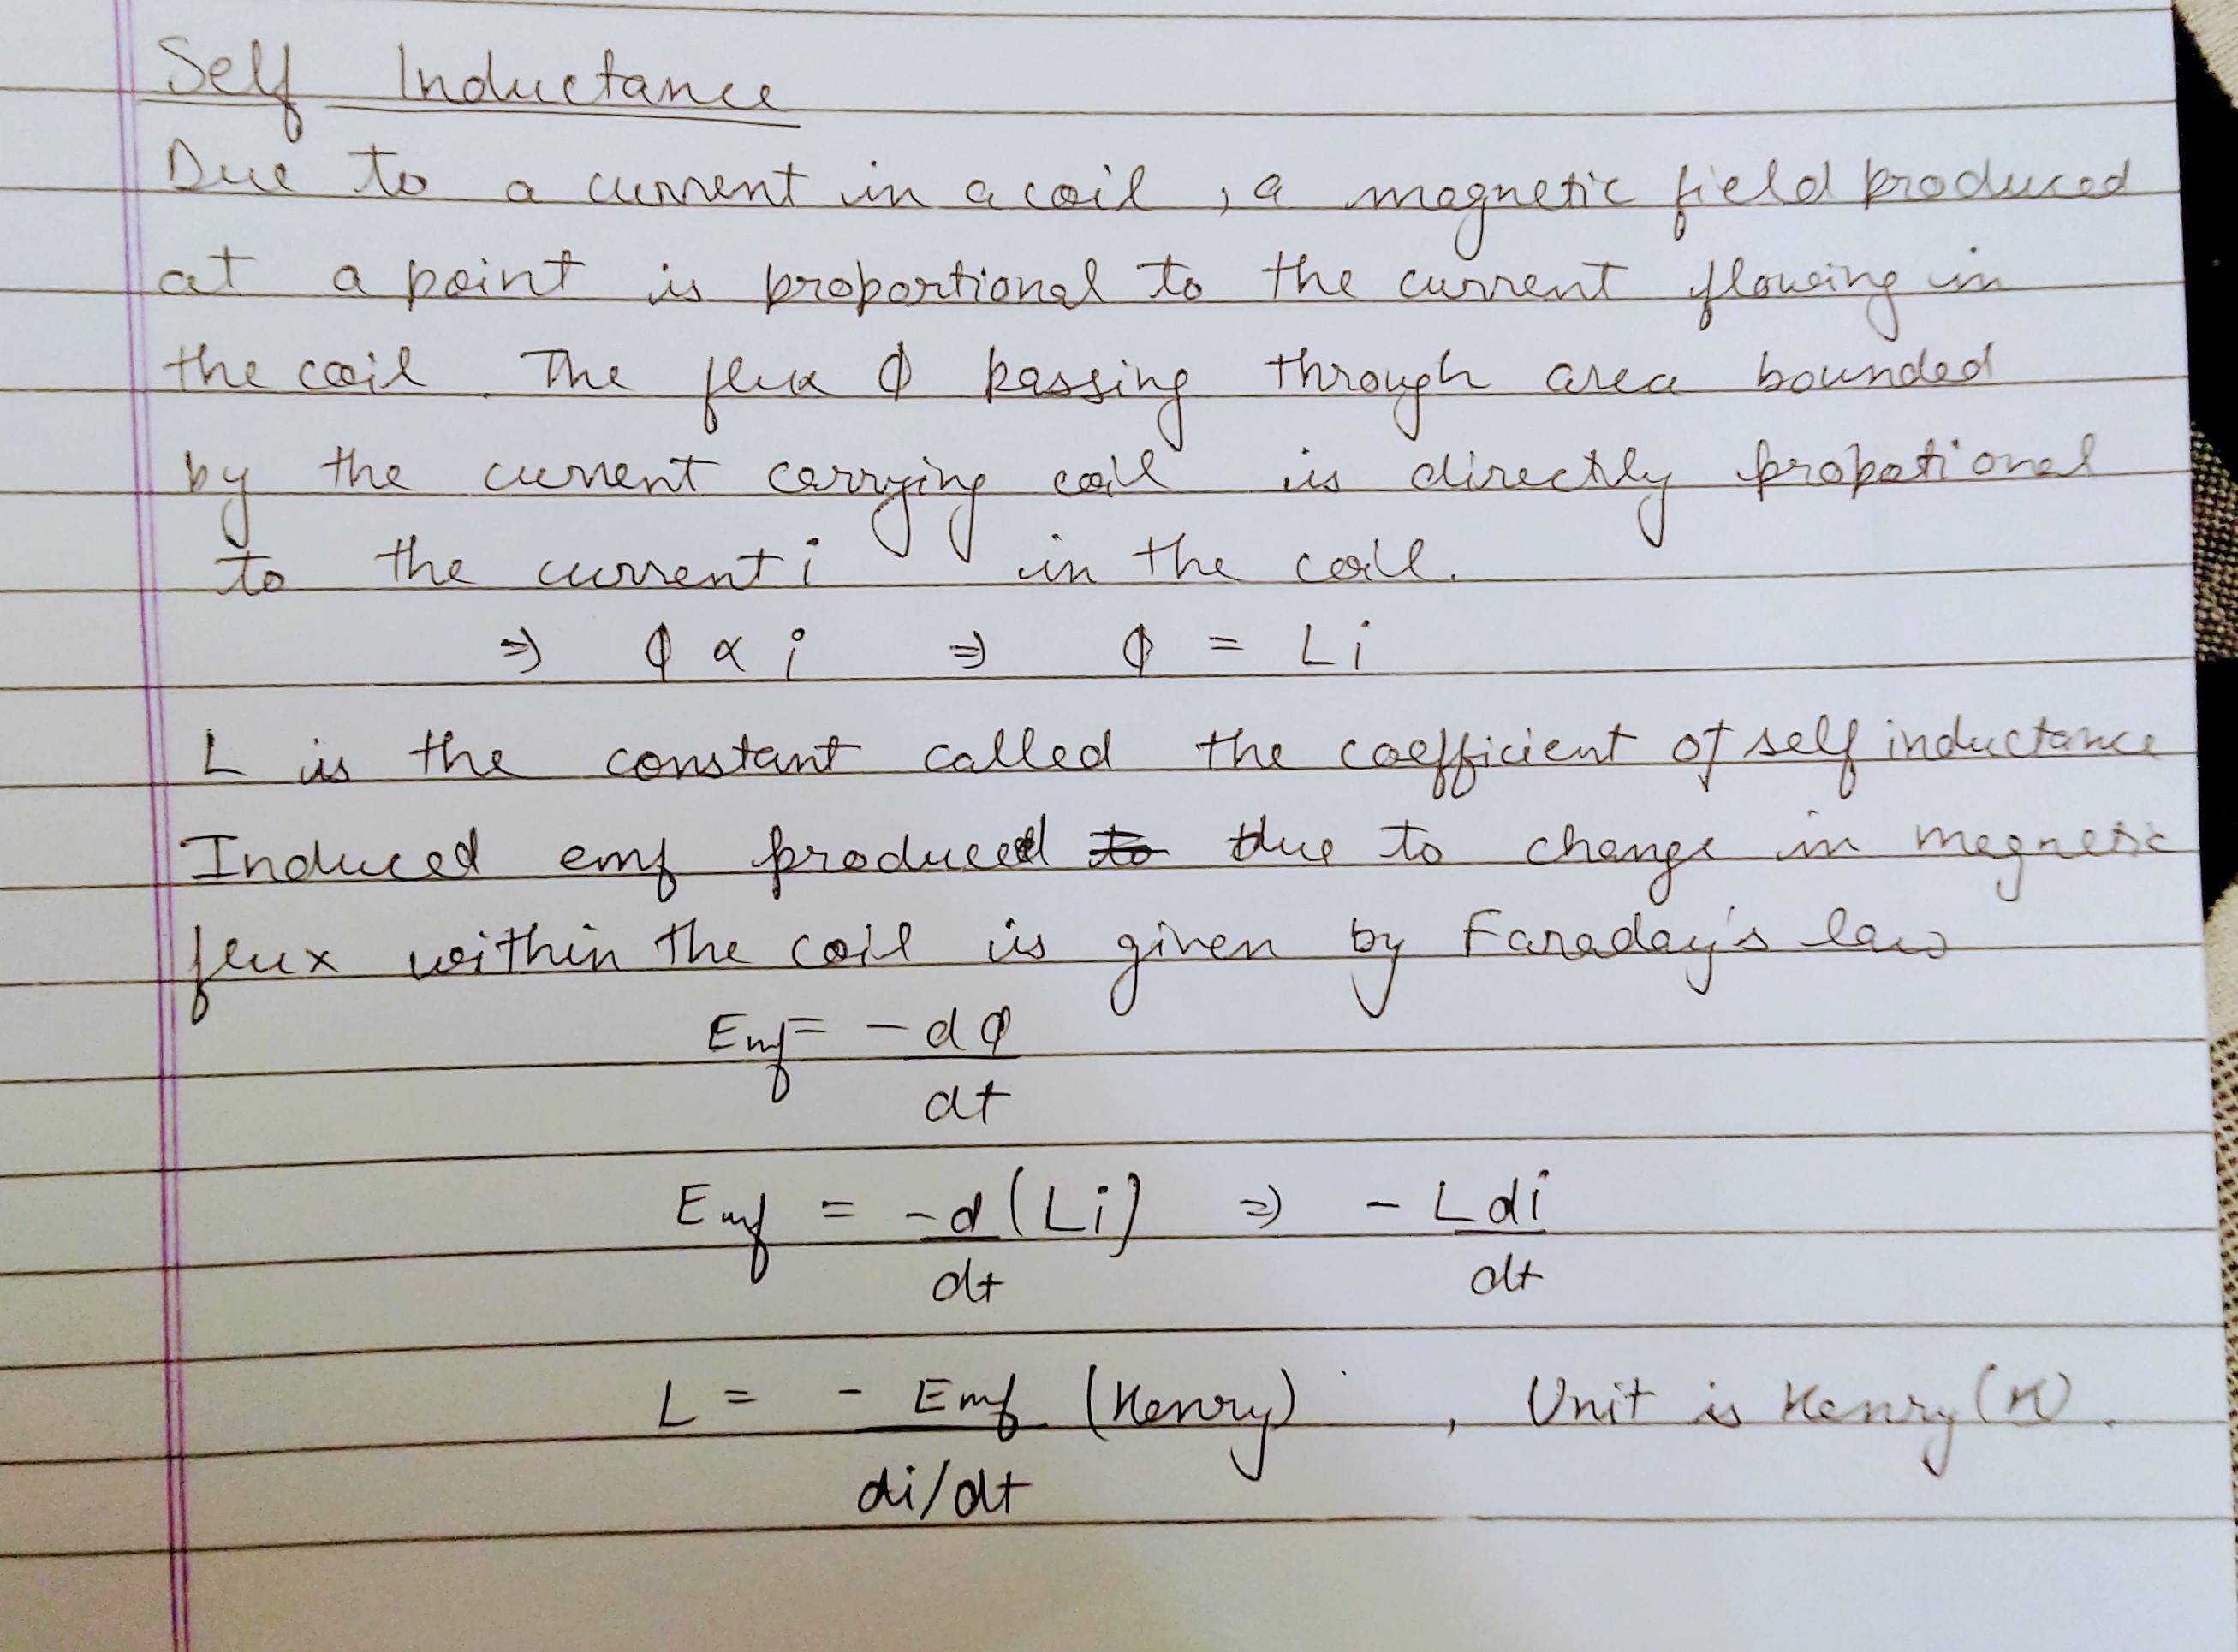 Self Inductance
Due to a current in a coil, a magnetic field produced
at a point is proportional to the current flowing in
the coil. The flux ϕ passing through area bounded
by the current carrying coil is directly propotional
to the current i in the coil.
⇒ ϕ ∝ i ⇒ ϕ = Li
L is the constant called the coefficient of self inductance
Induced emf produced due to change in magnetic
flux within the coil is given by Faraday's law
Emf = -dϕ/dt
Emf = -d/dt (Li) ⇒ - L di/dt
L = - Emf / di/dt (Henry), Unit is Henry (H).